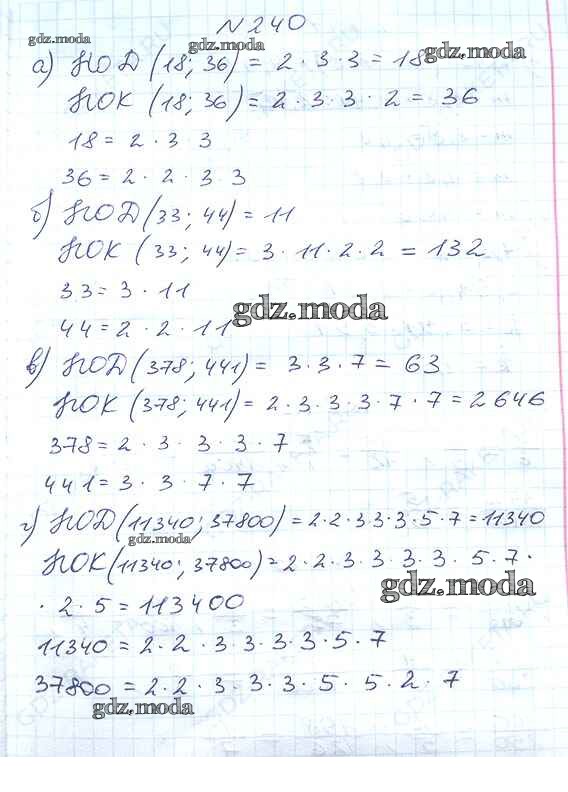 N 240
gdz.moda
gdz.moda
gdz.moda
а) НОД (18; 36) = 2 · 3 · 3 = 18
НОК (18; 36) = 2 · 3 · 3 · 2 = 36
18 = 2 · 3 · 3
36 = 2 · 2 · 3 · 3
б) НОД (33; 44) = 11
НОК (33; 44) = 3 · 11 · 2 · 2 = 132
33 = 3 · 11
gdz.moda
44 = 2 · 2 · 11
в) НОД (378; 441) = 3 · 3 · 7 = 63
НОК (378; 441) = 2 · 3 · 3 · 3 · 7 · 7 = 2646
378 = 2 · 3 · 3 · 3 · 7
441 = 3 · 3 · 7 · 7
г) НОД (11340; 37800) = 2 · 2 · 3 · 3 · 3 · 5 · 7 = 11340
gdz.moda
НОК (11340; 37800) = 2 · 2 · 3 · 3 · 3 · 3 · 5 · 7 ·
gdz.moda
· 2 · 5 = 113400
11340 = 2 · 2 · 3 · 3 · 3 · 3 · 5 · 7
37800 = 2 · 2 · 3 · 3 · 3 · 5 · 5 · 2 · 7
gdz.moda